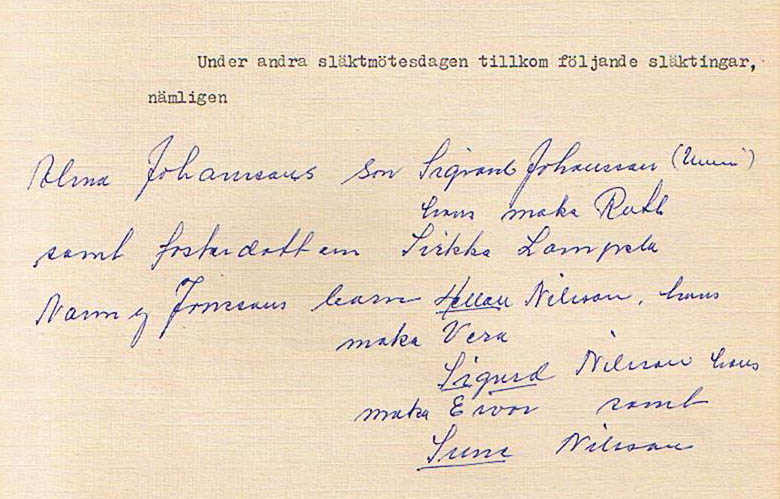 Under andra släktmötesdagen tillkom följande släktingar,
nämligen
Alma Johanssons son Sigvard Johansson
hans maka Ruth
samt fosterdottern Sirkka Lampela
Nanny Jonssons barn Nilsson, hans
maka Vera
Sigurd Nilsson hans
maka Eivor samt
Sune Nilsson